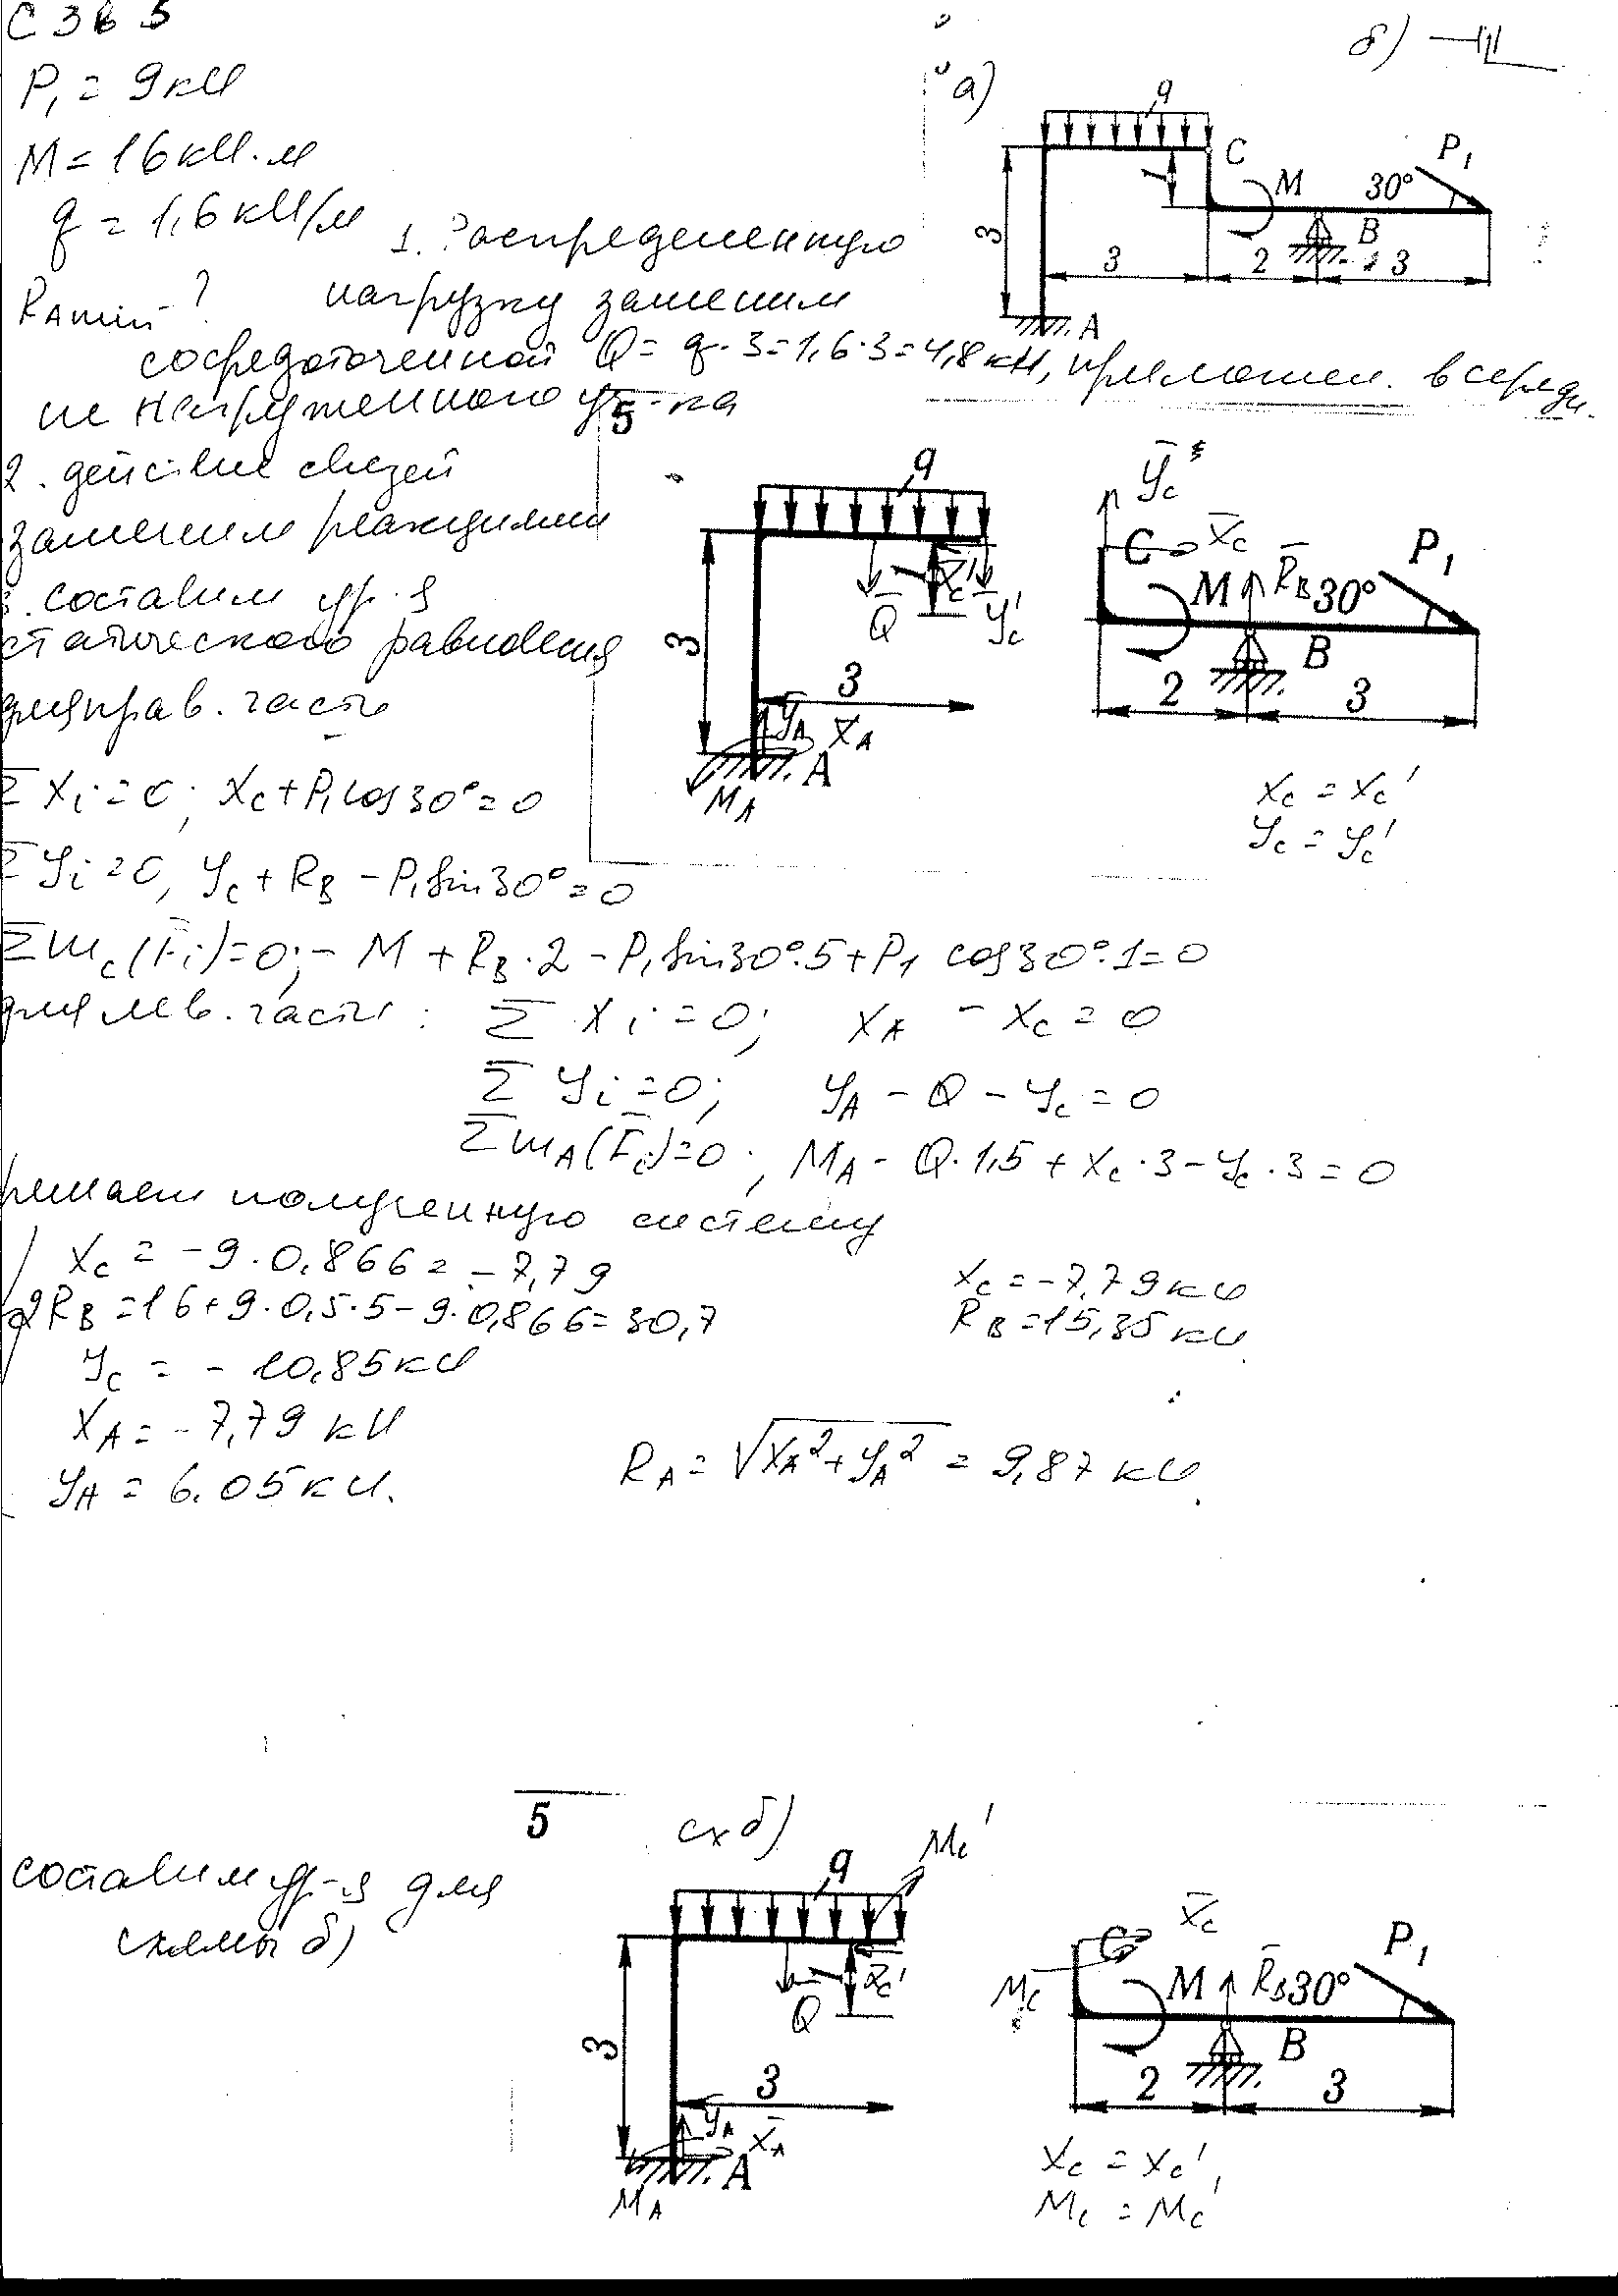 С 3 в 5
P₁ = 9 кН
M = 16 кН·м
q = 1,6 кН/м
R_A min - ?
а)
б)
q
C
M
30°
P₁
1
3
3
2
B
3
A
1. Распределенную
нагрузку заменим
сосредоточенной Q = q·3 = 1,6·3 = 4,8 кН, прилажен. в середи
не нагруженного уч-ка
5
2. действие связей
заменим реакциями
3. составим ур-я
статического равновесия
для прав. части
q
1
3
Q̄
X̄c'
Ȳc'
3
ȲA
X̄A
A
MA
Ȳc
C
X̄c
M
R̄B
30°
P₁
B
2
3
Xc = Xc'
Yc = Yc'
Σ Xi = 0; Xc + P₁ cos 30° = 0
Σ Yi = 0, Yc + RB - P₁ sin 30° = 0
Σ mc(F̄i) = 0; - M + RB·2 - P₁ sin 30°·5 + P₁ cos 30°·1 = 0
для лев. части: Σ Xi = 0; XA - Xc = 0
Σ Yi = 0; YA - Q - Yc = 0
Σ mA(F̄i) = 0; MA - Q·1,5 + Xc·3 - Yc·3 = 0
решаем полученную систему
Xc = - 9·0,866 = - 7,79
Xc = - 7,79 кН
2RB = 16 + 9·0,5·5 - 9·0,866 = 30,7
RB = 15,35 кН
Yc = - 10,85 кН
XA = - 7,79 кН
YA = 6.05 кН.
RA = √XA² + YA² = 9,87 кН.
5
сх б)
составим ур-я для
схемы б)
q
Mc'
1
3
Q̄
X̄c'
3
ȲA
X̄A
A
MA
C
X̄c
Mc
M
R̄B
30°
P₁
B
2
3
Xc = Xc',
Mc = Mc'